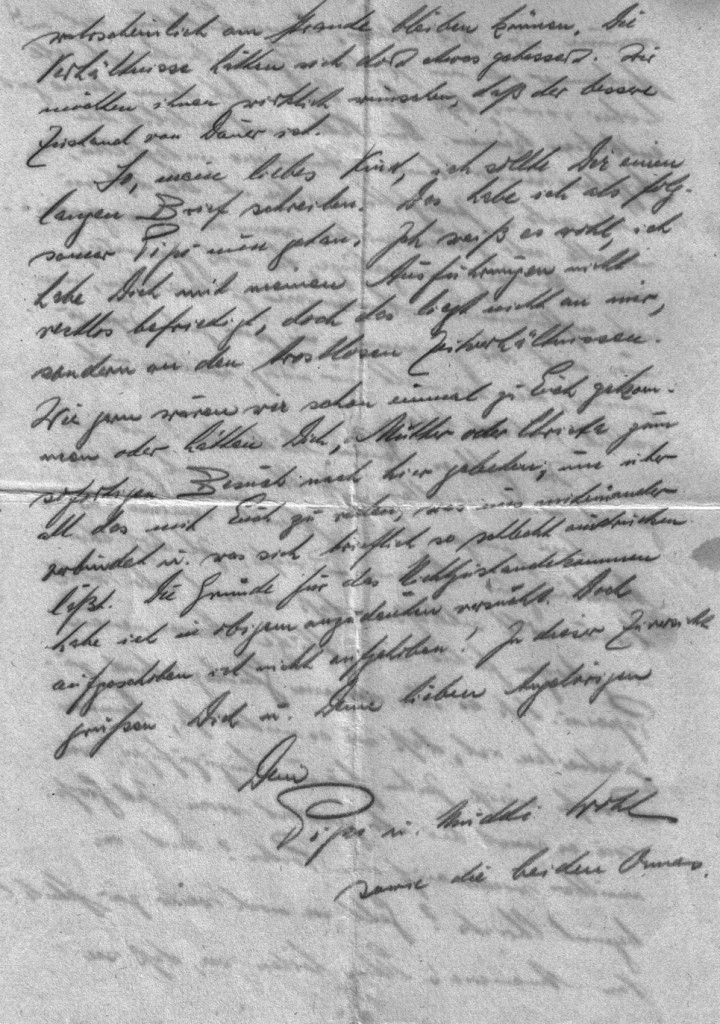 wahrscheinlich am Strande bleiben können. Die
Verhältnisse hätten sich dort etwas gebessert. Wir
möchten ihnen wirklich wünschen, daß der bessere
Zustand von Dauer ist.
So, mein liebes Kind, ich sollte Dir einen
langen Brief schreiben. Das habe ich als folg-
samer Pipi nun getan. Ich weiß es wohl, ich
habe Dich mit meinen Ausführungen nicht
restlos befriedigt, doch das liegt nicht an mir,
sondern an den trostlosen Zeitverhältnissen.
Wie gern wären wir schon einmal zu Euch gekom-
men oder hätten Dich, Mutter oder Christa zum
sofortigen Besuch nach hier gebeten, um über
all das mit Euch zu reden, was uns miteinander
verbindet u. was sich brieflich so schlecht ausdrücken
läßt. Die Gründe für das Nichtzustandekommen
habe ich in obigem anzudeuten versucht. Doch
aufgeschoben ist nicht aufgehoben! In dieser Zuversicht
grüßen Dich u. Deine lieben Angehörigen
Dein
Pipi u. Muddi
sowie die beiden Omas.